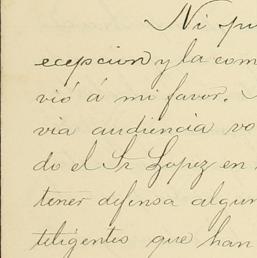 Ni pu
ecepcion y la com
vió á mi favor.
via audiencia vo
do el Sr Lopez en
tener defensa algun
teligentes que han